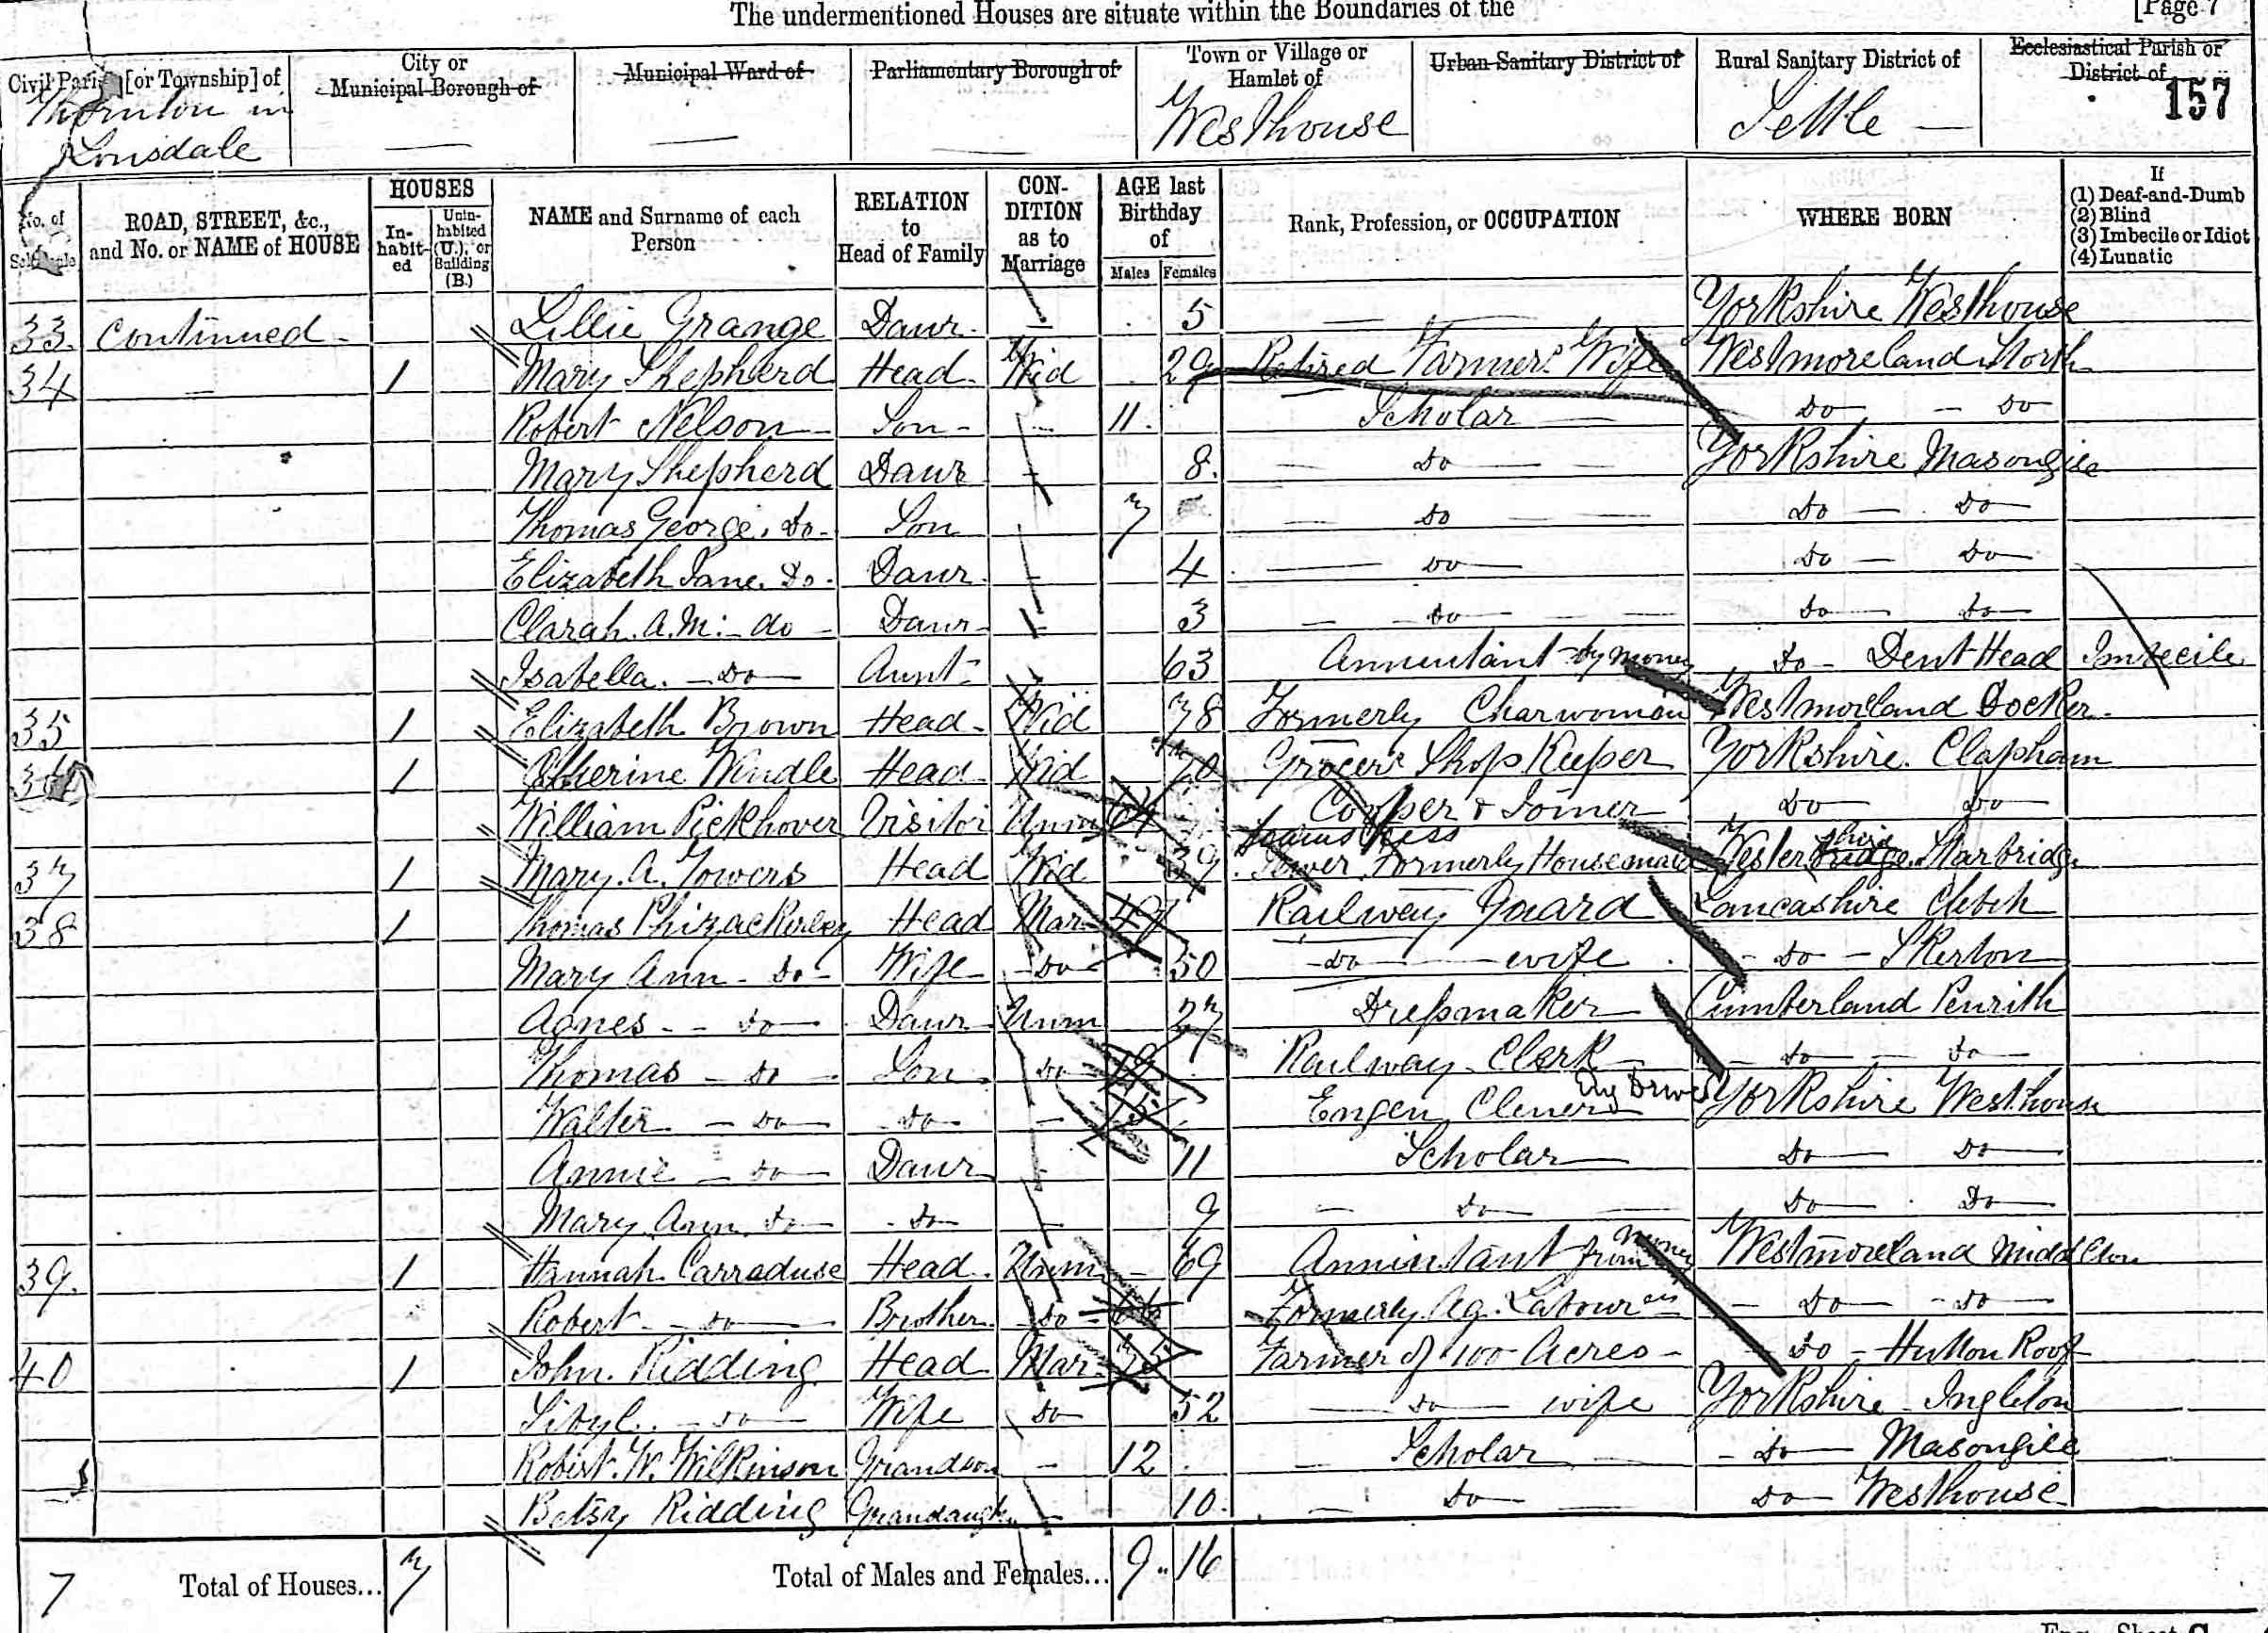 The undermentioned Houses are situate within the Boundaries of the [Page 7
Civil Parish [or Township] of City or Municipal Borough of Municipal Ward of Parliamentary Borough of Town or Village or Hamlet of Urban Sanitary District of Rural Sanitary District of Ecclesiastical Parish or District of
Thornton in Lonsdale Westhouse Settle 157
No. of ROAD, STREET, &c., and No. or NAME of HOUSE HOUSES Inhabited Uninhabited (U.), or Building (B.) NAME and Surname of each Person RELATION to Head of Family CONDITION as to Marriage AGE last Birthday of Males Females Rank, Profession, or OCCUPATION WHERE BORN If (1) Deaf-and-Dumb (2) Blind (3) Imbecile or Idiot (4) Lunatic
33 Continued Lillie Grange Daur 5 Yorkshire Westhouse
34 1 Mary Shepherd Head Wid 29 Retired Farmers Wife Westmoreland
Robert Nelson Son 11 Scholar Do Do
Mary Shepherd Daur 8 Do Yorkshire Masongile
Thomas George Do Son 7 Do Do Do
Elizabeth Jane Do Daur 4 Do Do Do
Clarah A.M. do Daur 3 Do Do Do
Isabella Do Aunt 63 Annuitant by money Do Dent Head Imbecile
35 1 Elizabeth Brown Head Wid 78 Formerly Charwoman Westmoreland Docker
36 1 Catherine Windle Head Wid Grocer Shop Keeper Yorkshire Clapham
William Pickhover Visitor Unm Cooper & Joiner Do Do
37 1 Mary A. Towers Head Wid 39 Formerly Housemaid
38 1 Thomas Phizackerley Head Mar 49 Railway Guard Lancashire
Mary Ann Do Wife Do 50 Do wife Do Skerton
Agnes Do Daur Unm 27 Dressmaker Cumberland Penrith
Thomas Do Son Do Railway Clerk Do Do
Walter Do Do 15 Engen Clener Eng Driver Yorkshire Westhouse
Annie Do Daur 11 Scholar Do Do
Mary Ann Do Do 9 Do Do Do
39 1 Hannah Carraduse Head Unm 69 Annuitant from money Westmoreland Middleton
Robert Do Brother Do Formerly Ag. Labourer Do Do
40 1 John Ridding Head Mar 75 Farmer of 100 Acres Do Hutton Roof
Sibyl Do Wife Do 52 Do wife Yorkshire Ingleton
Robert W. Wilkinson Grandson 12 Scholar Do Masongill
Betsy Ridding Grandaugh 10 Do Do Westhouse
7 Total of Houses... 7 Total of Males and Females... 9 16